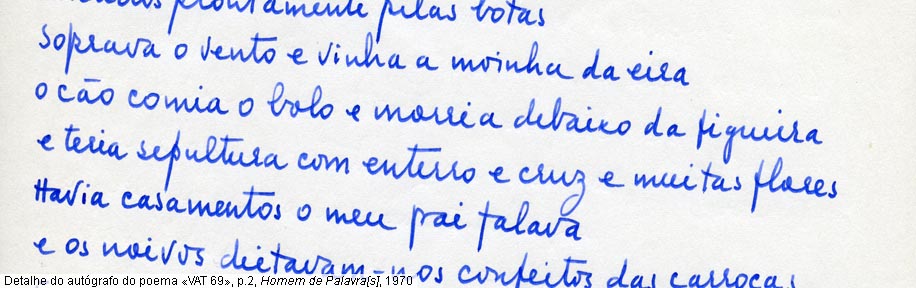 prontamente pelas botas
soprava o vento e vinha a moinha da eira
o cão comia o bolo e morria debaixo da figueira
e teria sepultura com enterro e cruz e muitas flores
Havia casamentos o meu pai falava
e os noivos deitavam-nos confeitos das carroças
Detalhe do autógrafo do poema «VAT 69», p.2, Homem de Palavra[s], 1970